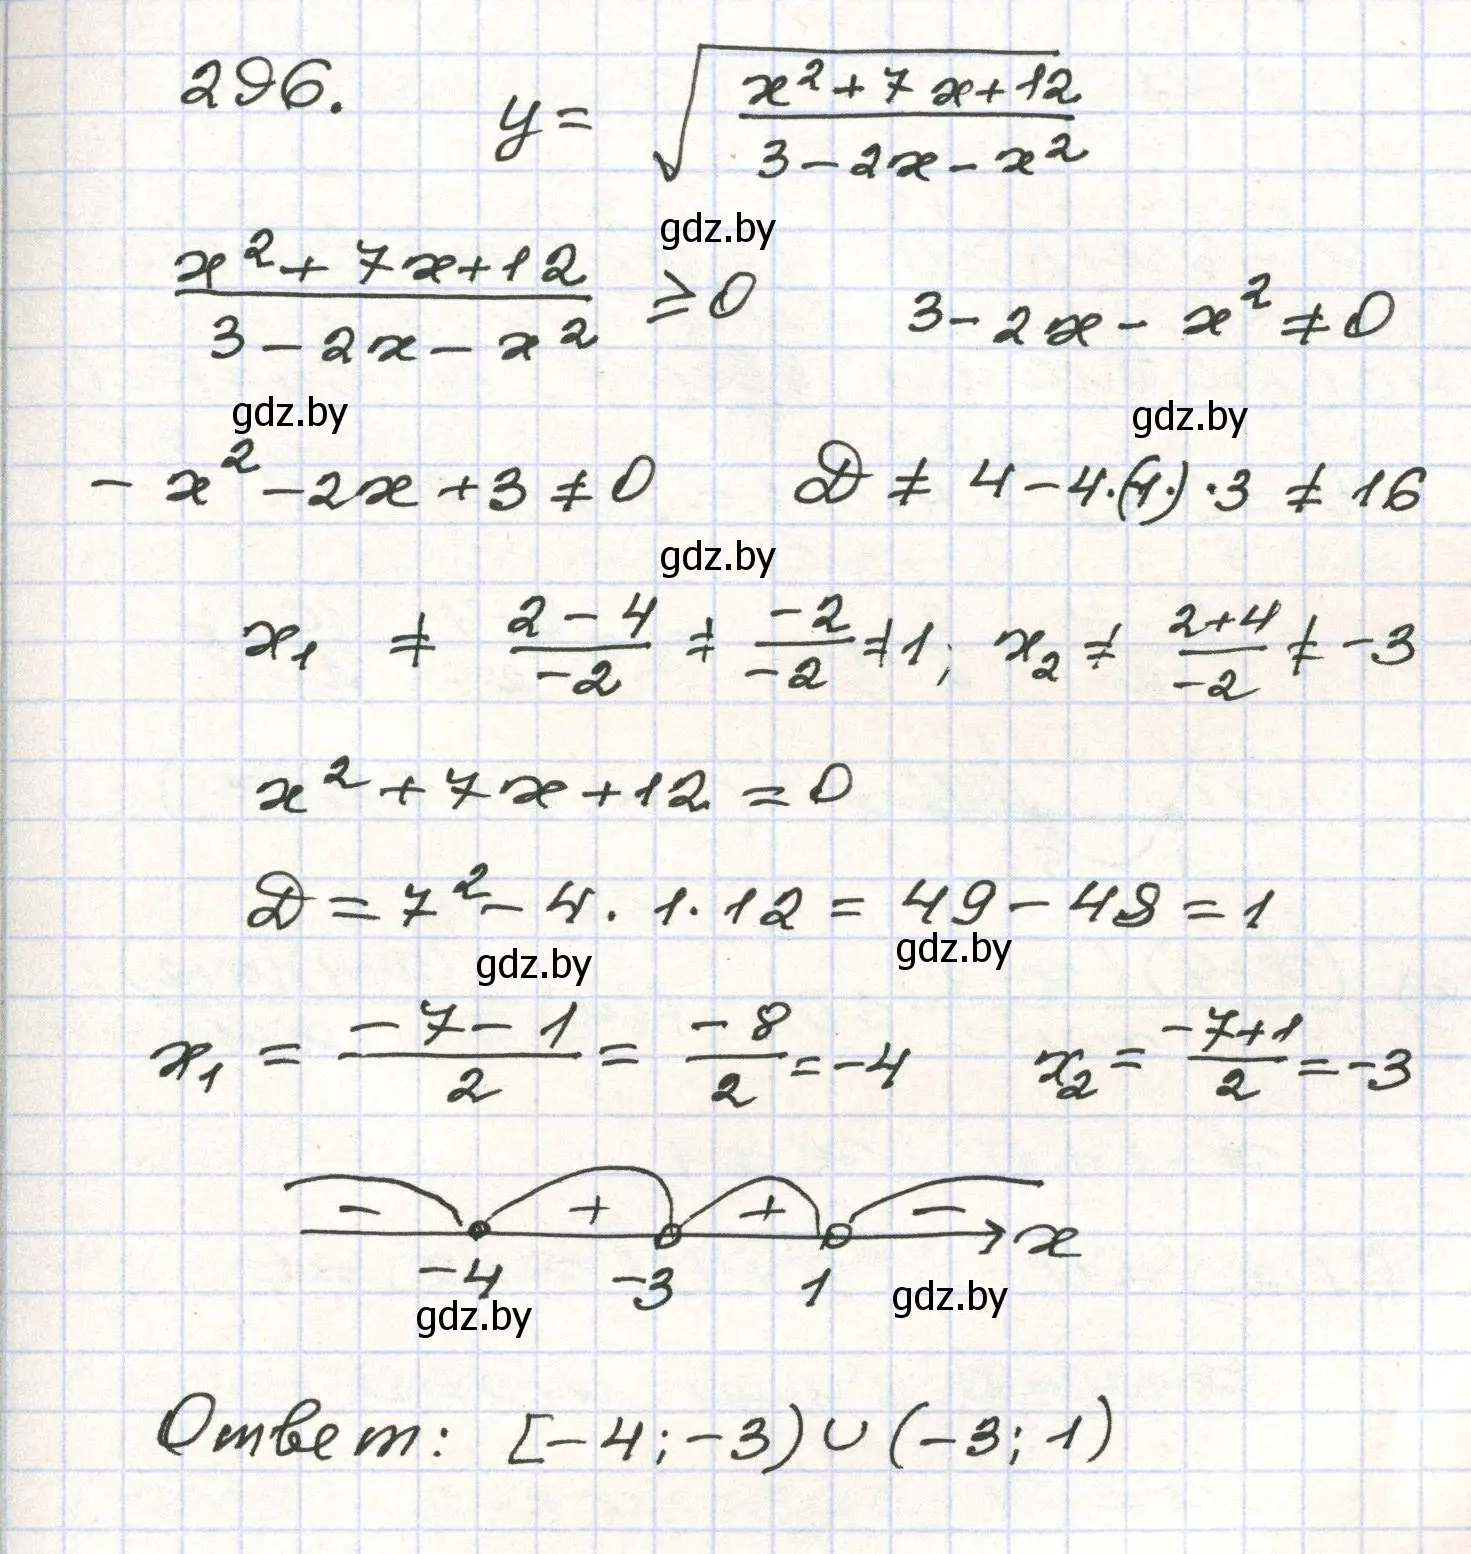 296. y = √((x² + 7x + 12)/(3 - 2x - x²))
gdz.by
(x² + 7x + 12)/(3 - 2x - x²) ≥ 0   3 - 2x - x² ≠ 0
gdz.by gdz.by
- x² - 2x + 3 ≠ 0   D ≠ 4 - 4·(-1)·3 ≠ 16
gdz.by
x₁ ≠ (2 - 4)/(-2) ≠ (-2)/(-2) ≠ 1; x₂ ≠ (2+4)/(-2) ≠ -3
x² + 7x + 12 = 0
D = 7² - 4 · 1 · 12 = 49 - 48 = 1
gdz.by gdz.by
x₁ = (-7 - 1)/2 = (-8)/2 = -4   x₂ = (-7+1)/2 = -3
- + + - x
-4 -3 1
gdz.by gdz.by
Ответ: [-4; -3) ∪ (-3; 1)